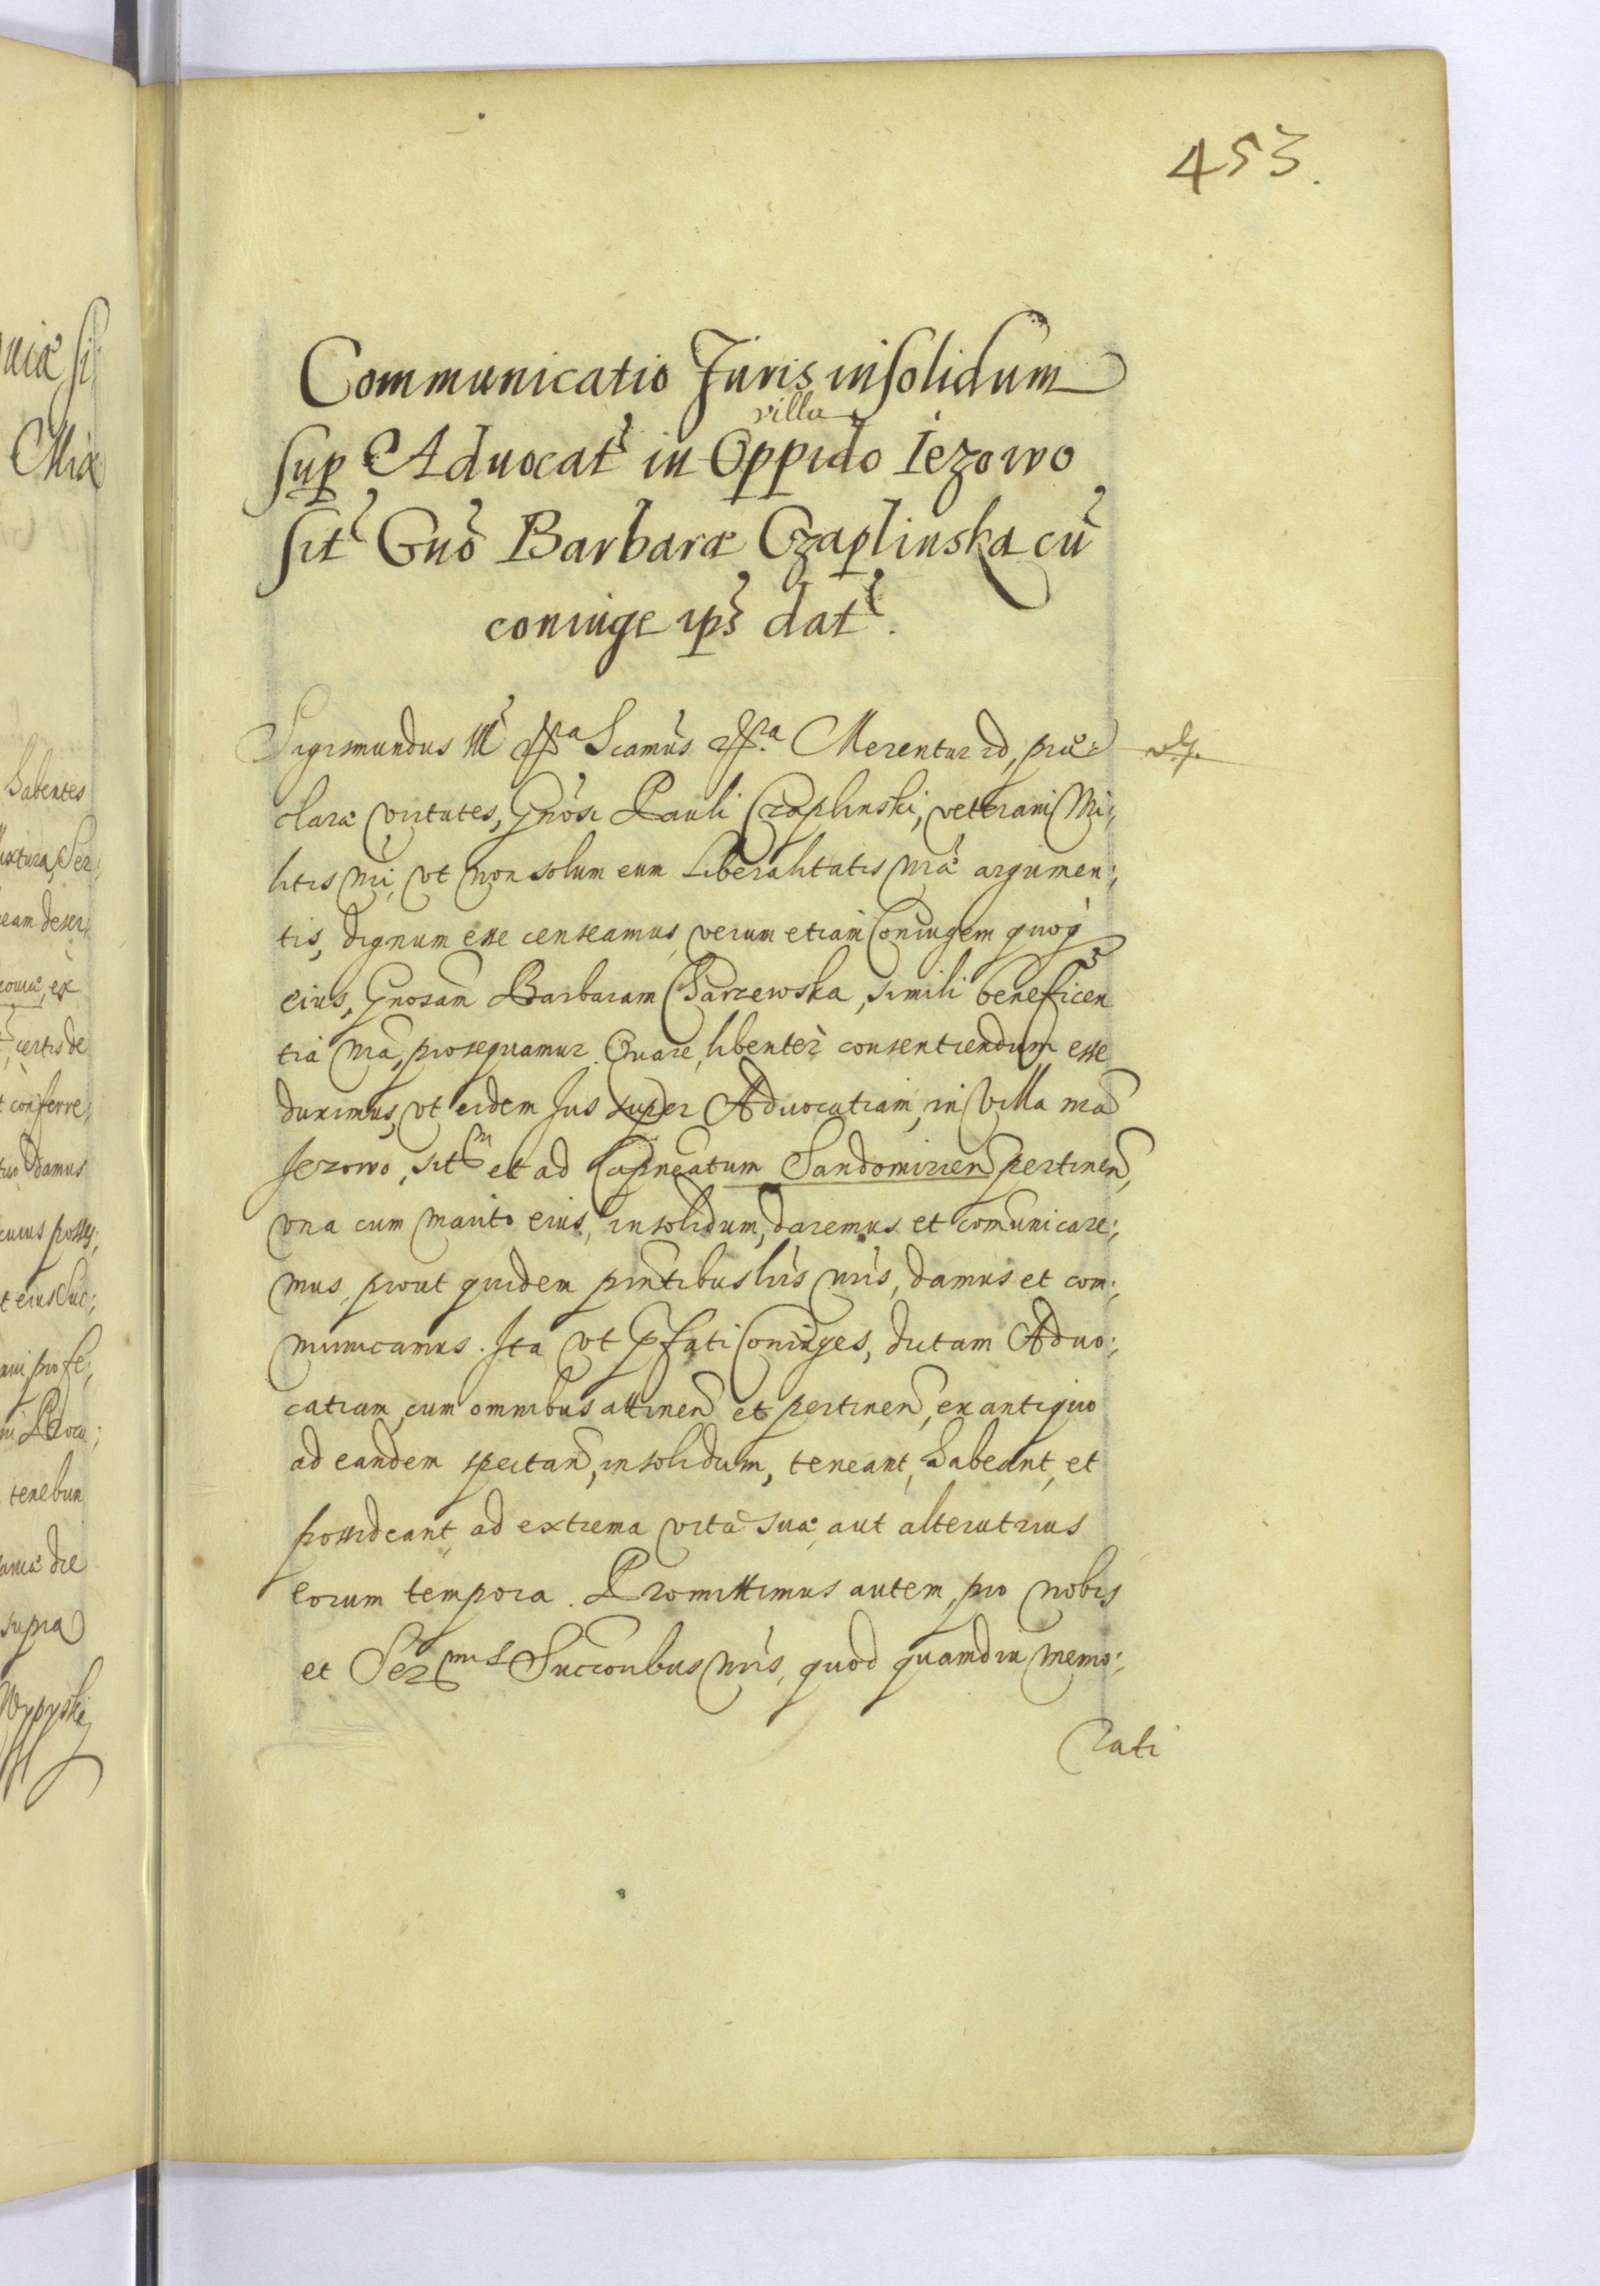 453.
Communicatio Juris insolidum
villa
sup Advocat in Oppido Iezowo
sit Gnō Barbaræ Czaplinska cū
coniuge ips dat.
Sigismundus III Scamus Merentur id, præ=
claræ virtutes, Gnosi Pauli Czaplinski, veterani Mi;
litis nri, vt non solum eum Liberalitatis nræ argumen;
tis, dignum esse censeamus, verum etiam Coniugem quoq
eius, Gnosam Barbaram Charzewska, simili beneficen
tia nra, prosequamur. Quare, libenter consentiendum esse
duximus, vt eidem Jus super Advocatiam, in Villa nra
Jezowo, sitam et ad Capneatum Sandomirien pertinen,
vna cum marito eius, insolidum, daremus et comunicare;
mus, prout quidem pntibus lris nris, damus et com;
municamus. Ita vt pfati Coniuges, dictam Advo;
catiam, cum omnibus attinen et pertinen, ex antiquo
ad eandem spectan, insolidum, teneant, habeant, et
possideant, ad extrema vitæ suæ, aut alterutrius
eorum tempora. Promittimus autem, pro nobis
et Ser mis Succoribus nris, quod quamdiu memo;
rati